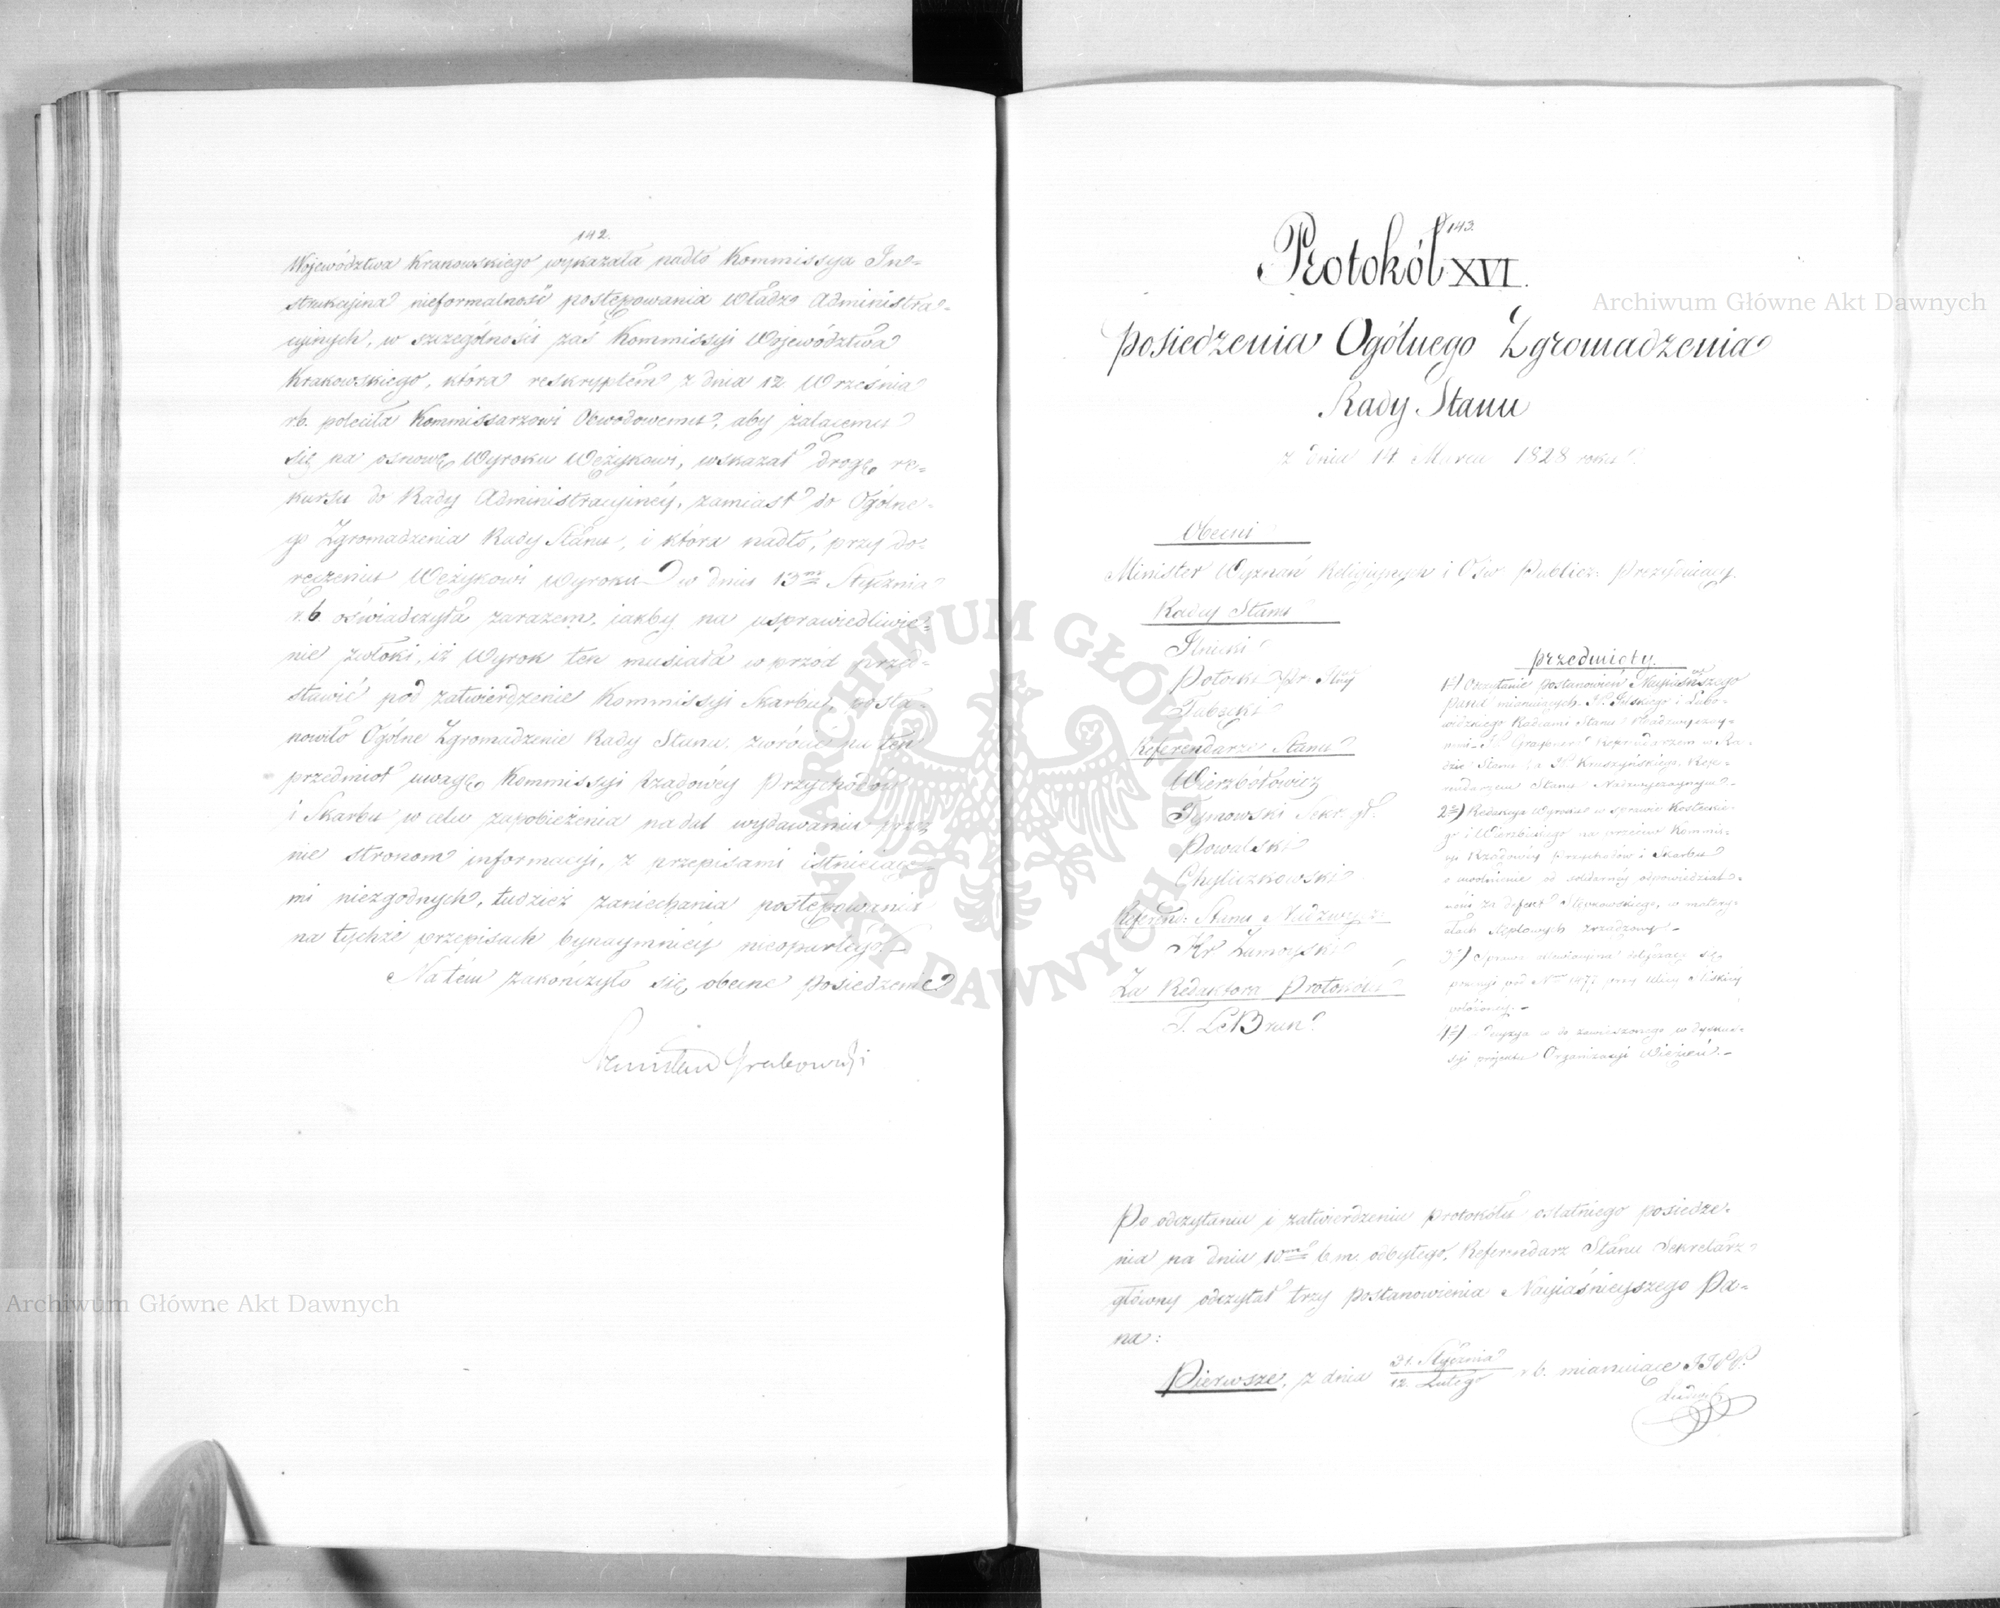 142.
Województwa Krakowskiego wykazała nadto Kommissya In-
strukcyina nieformalność postępowania Władz Administra-
cyinych, w szczególności zaś Kommissyi Województwa
Krakowskiego, która reskryptem z dnia 12 Września
r.b. poleciła Kommissarzowi Obwodowemu, aby żalącemu
się na osnowę Wyroku Wężykowi, wskazał drogę re-
kursu do Rady Administracyinéy, zamiast do Ogólne-
go Zgromadzenia Rady Stanu, i która nadto, przy do-
ręczeniu Wężykowi Wyroku w dniu 13m Stycznia
r.b. oświadczyła zarazem, iakby na usprawiedliwie-
nie zwłoki, iż Wyrok ten musiała wprzód przed-
stawić pod zatwierdzenie Kommissyi Skarbu, posta-
nowiło Ogólne Zgromadzenie Rady Stanu zwrócić na ten
przedmiot uwagę Kommissyi Rządowéy Przychodów
i Skarbu w celu zapobieżenia nadal wydawaniu przez
nie stronom informacyi, z przepisami istnieiące-
mi niezgodnych, tudzież zaniechania postępowania
na tychże przepisach bynaymniéy nieopartégo.
Na tém zakończyło się obecne posiedzenie
Stanisław Grabowski
143.
Protokół XVI.
posiedzenia Ogólnego Zgromadzenia
Rady Stanu
z dnia 14 Marca 1828 roku.
Obecni
Minister Wyznań Religijnych i Ośw. Publicz: Prezyduiący.
Radcy Stanu
Ilnicki
Potocki
Tabęcki
Referendarze Stanu
Wierzbołowicz
Tymowski Sekr. gł.
Powalski
Chyliczkowski
Referend: Stanu Nadzwycz:
Hr Zamoyski
Za Redaktora Protokółu
T. Le Brun
Przedmioty.
1e) Odczytanie postanowień Nayiaśnszego
Pana mianuiących
Radcami Stanu Nadzwyczay-
nemi Referendarzem w Ra-
dzie Stanu, a Kruszyńskiego, Refe-
rendarzem Stanu Nadzwyczaynym.
2e) Redakcya Wyroku w sprawie Kosteckie-
go i Wierzbickiego na przeciw Kommis-
syi Rządowéy Przychodów i Skarbu
o uwolnienie od solidarnéy odpowiedzial-
ności za defekt w matery-
ałach stęplowych zrządzony.
3e) Sprawa
posesyi pod Nrem 1477 przy ulicy Śliskiéy
położonéy.
4e) Decyzya co do zawieszonego w dyskus-
syi proiektu Organizacyi Więzień.
Po odczytaniu i zatwierdzeniu protokółu ostatniego posiedze-
nia na dniu 10m b.m. odbytego, Referendarz Stanu Sekretarz
główny odczytał trzy postanowienia Nayiaśnieyszego Pa-
na:
Pierwsze, z dnia 31. Stycznia
12. Lutego r.b. mianuiące
Archiwum Główne Akt Dawnych
Archiwum Główne Akt Dawnych
ARCHIWUM GŁÓWNE AKT DAWNYCH